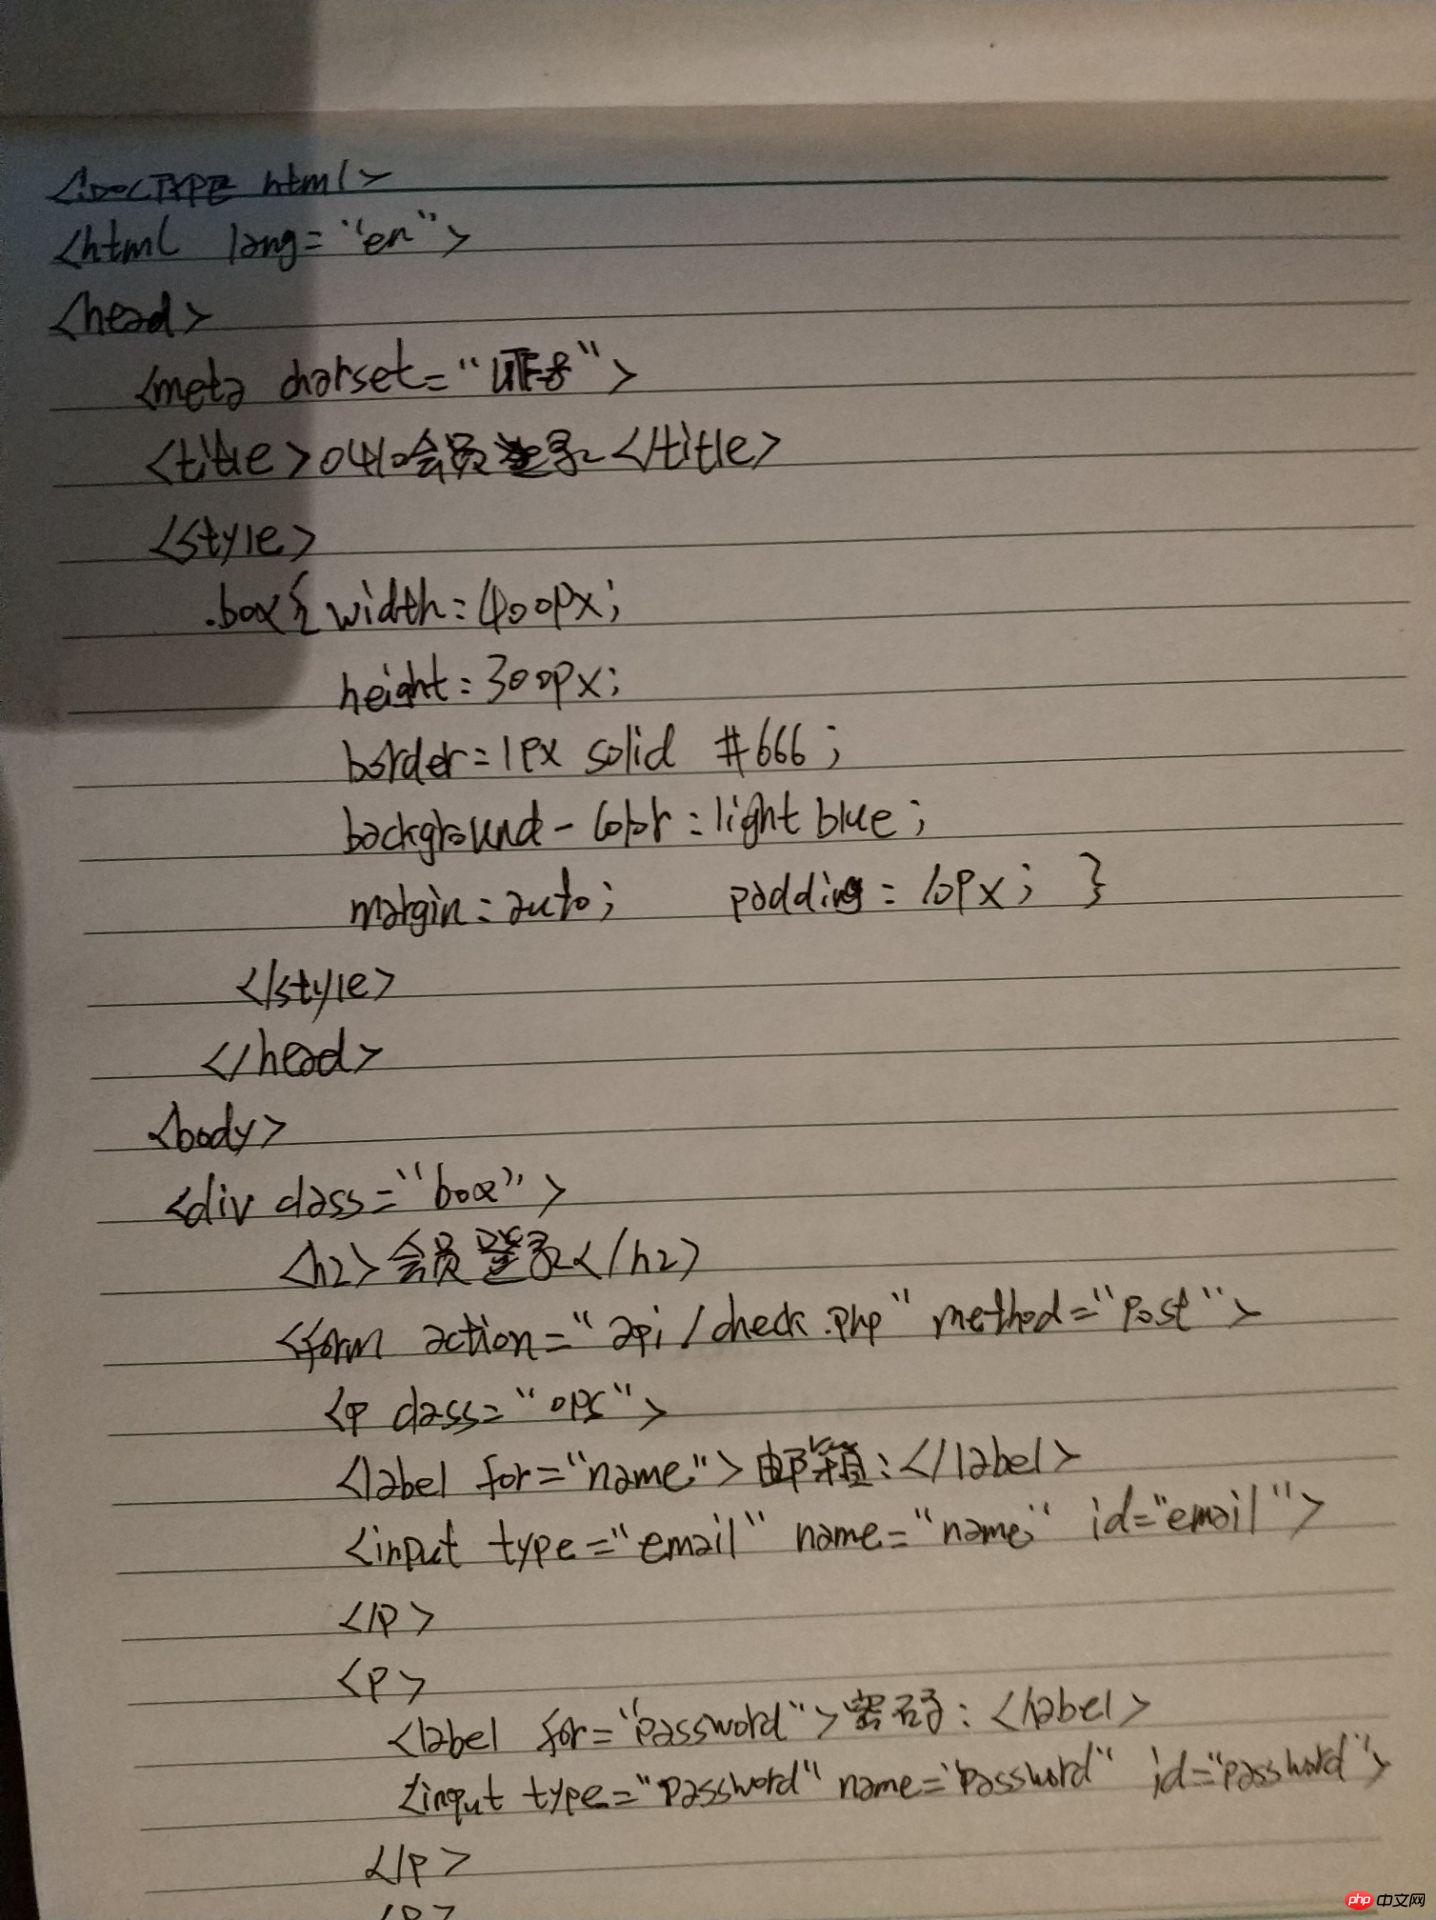 <!DOCTYPE html>
<html lang="en">
<head>
<meta charset="UTF-8">
<title>0410会员登录</title>
<style>
.box{width:400px;
height:300px;
border:1px solid #666;
background-color:lightblue;
margin:auto; padding:10px; }
</style>
</head>
<body>
<div class="box">
<h2>会员登录</h2>
<form action="api/check.php" method="post">
<p class="ops">
<label for="name">邮箱:</label>
<input type="email" name="name" id="email">
</p>
<p>
<label for="password">密码:</label>
<input type="password" name="password" id="password">
</p>
<p>
php 中文网